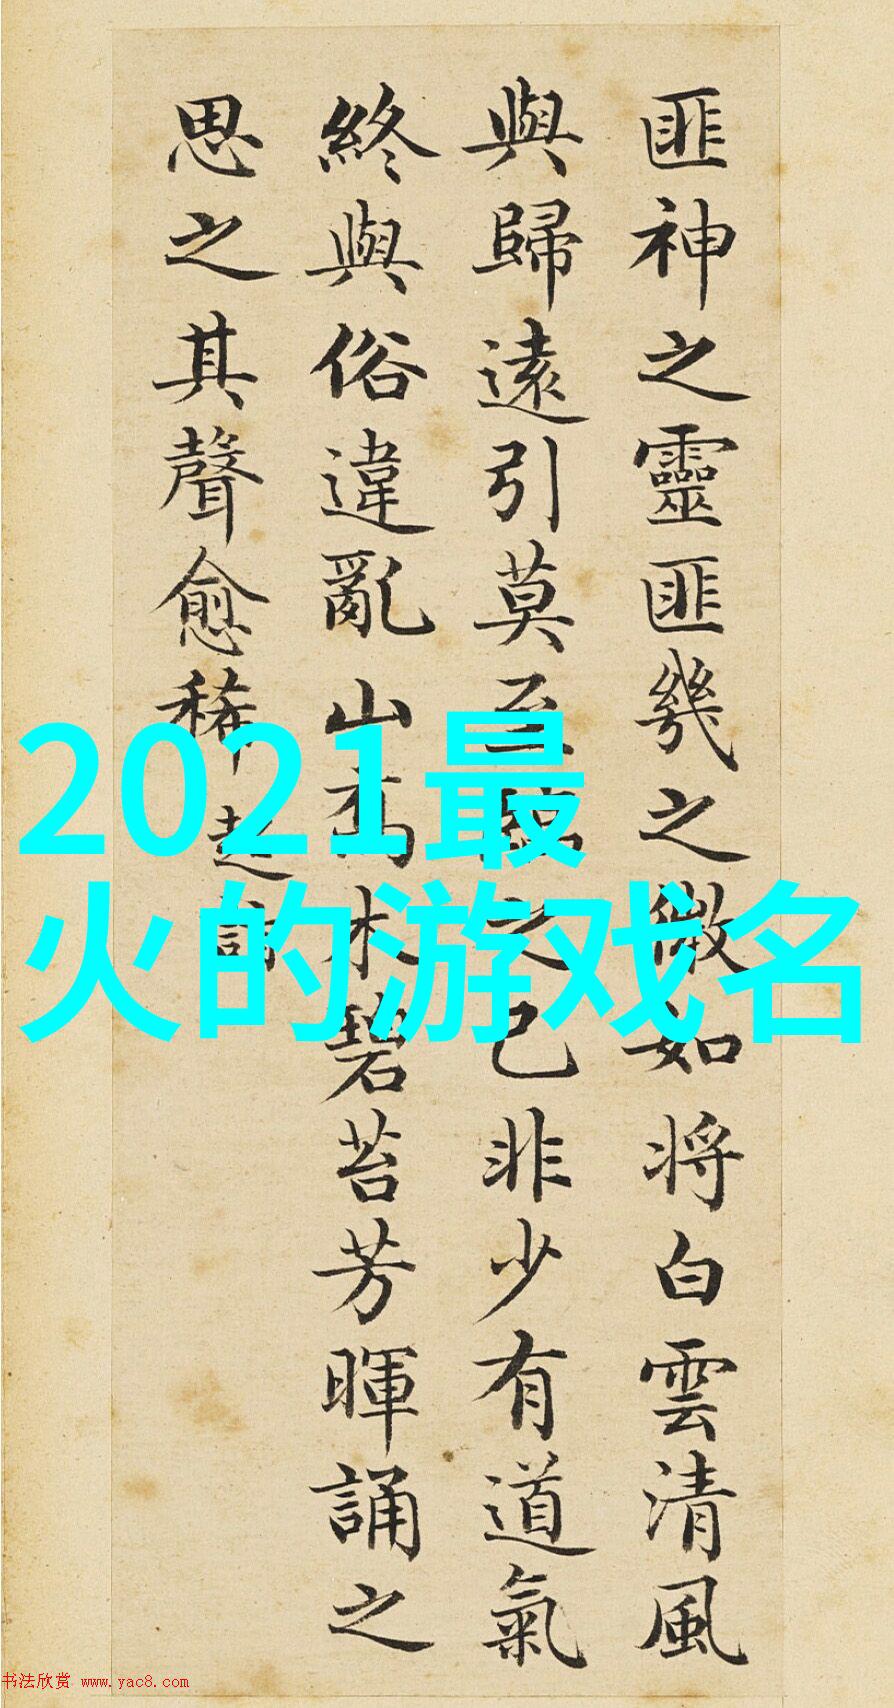 匪神之靈匪幾之微如将白雲清風
與歸遠引莫至臨之已非少有道氣
終與俗違亂山喬木碧苔芳暉誦之
思之其聲愈稀 超詣
2021最
火的游戏名
书法欣赏 www.yac8.com